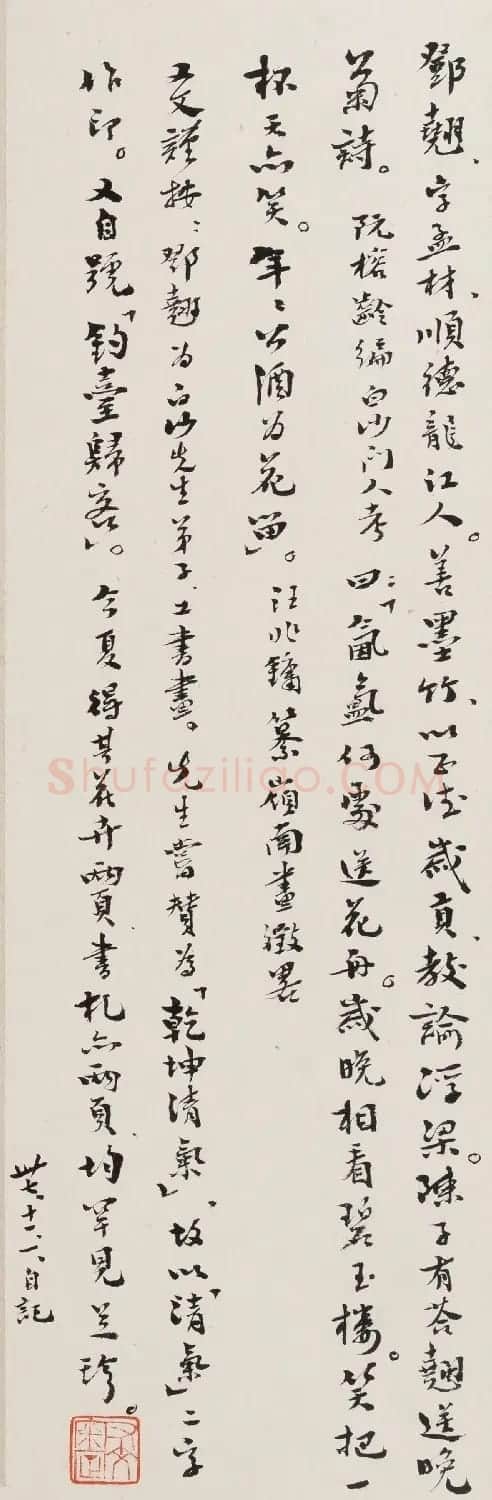 鄧翹、字孟材、順德龍江人。善墨竹、以正德歲貢、教諭浮梁。陳子有荅翹送晚
菊詩。阮榕齡編白沙門人考曰：「氤氳何處送花舟。歲晚相看碧玉樓。笑把一
杯天亦笑。年〻公酒为花留」。汪兆鏞纂嶺南畫徵畧
又文謹按：鄧翹为白沙先生弟子、工書畫。先生嘗贊為「乾坤清氣」、故以「清氣」二字
作印。又自號「釣臺歸客」。今夏得其花卉兩頁書札亦兩頁、均罕見足珍。
卅七、十一、一、自記
Shufaziliao.COM